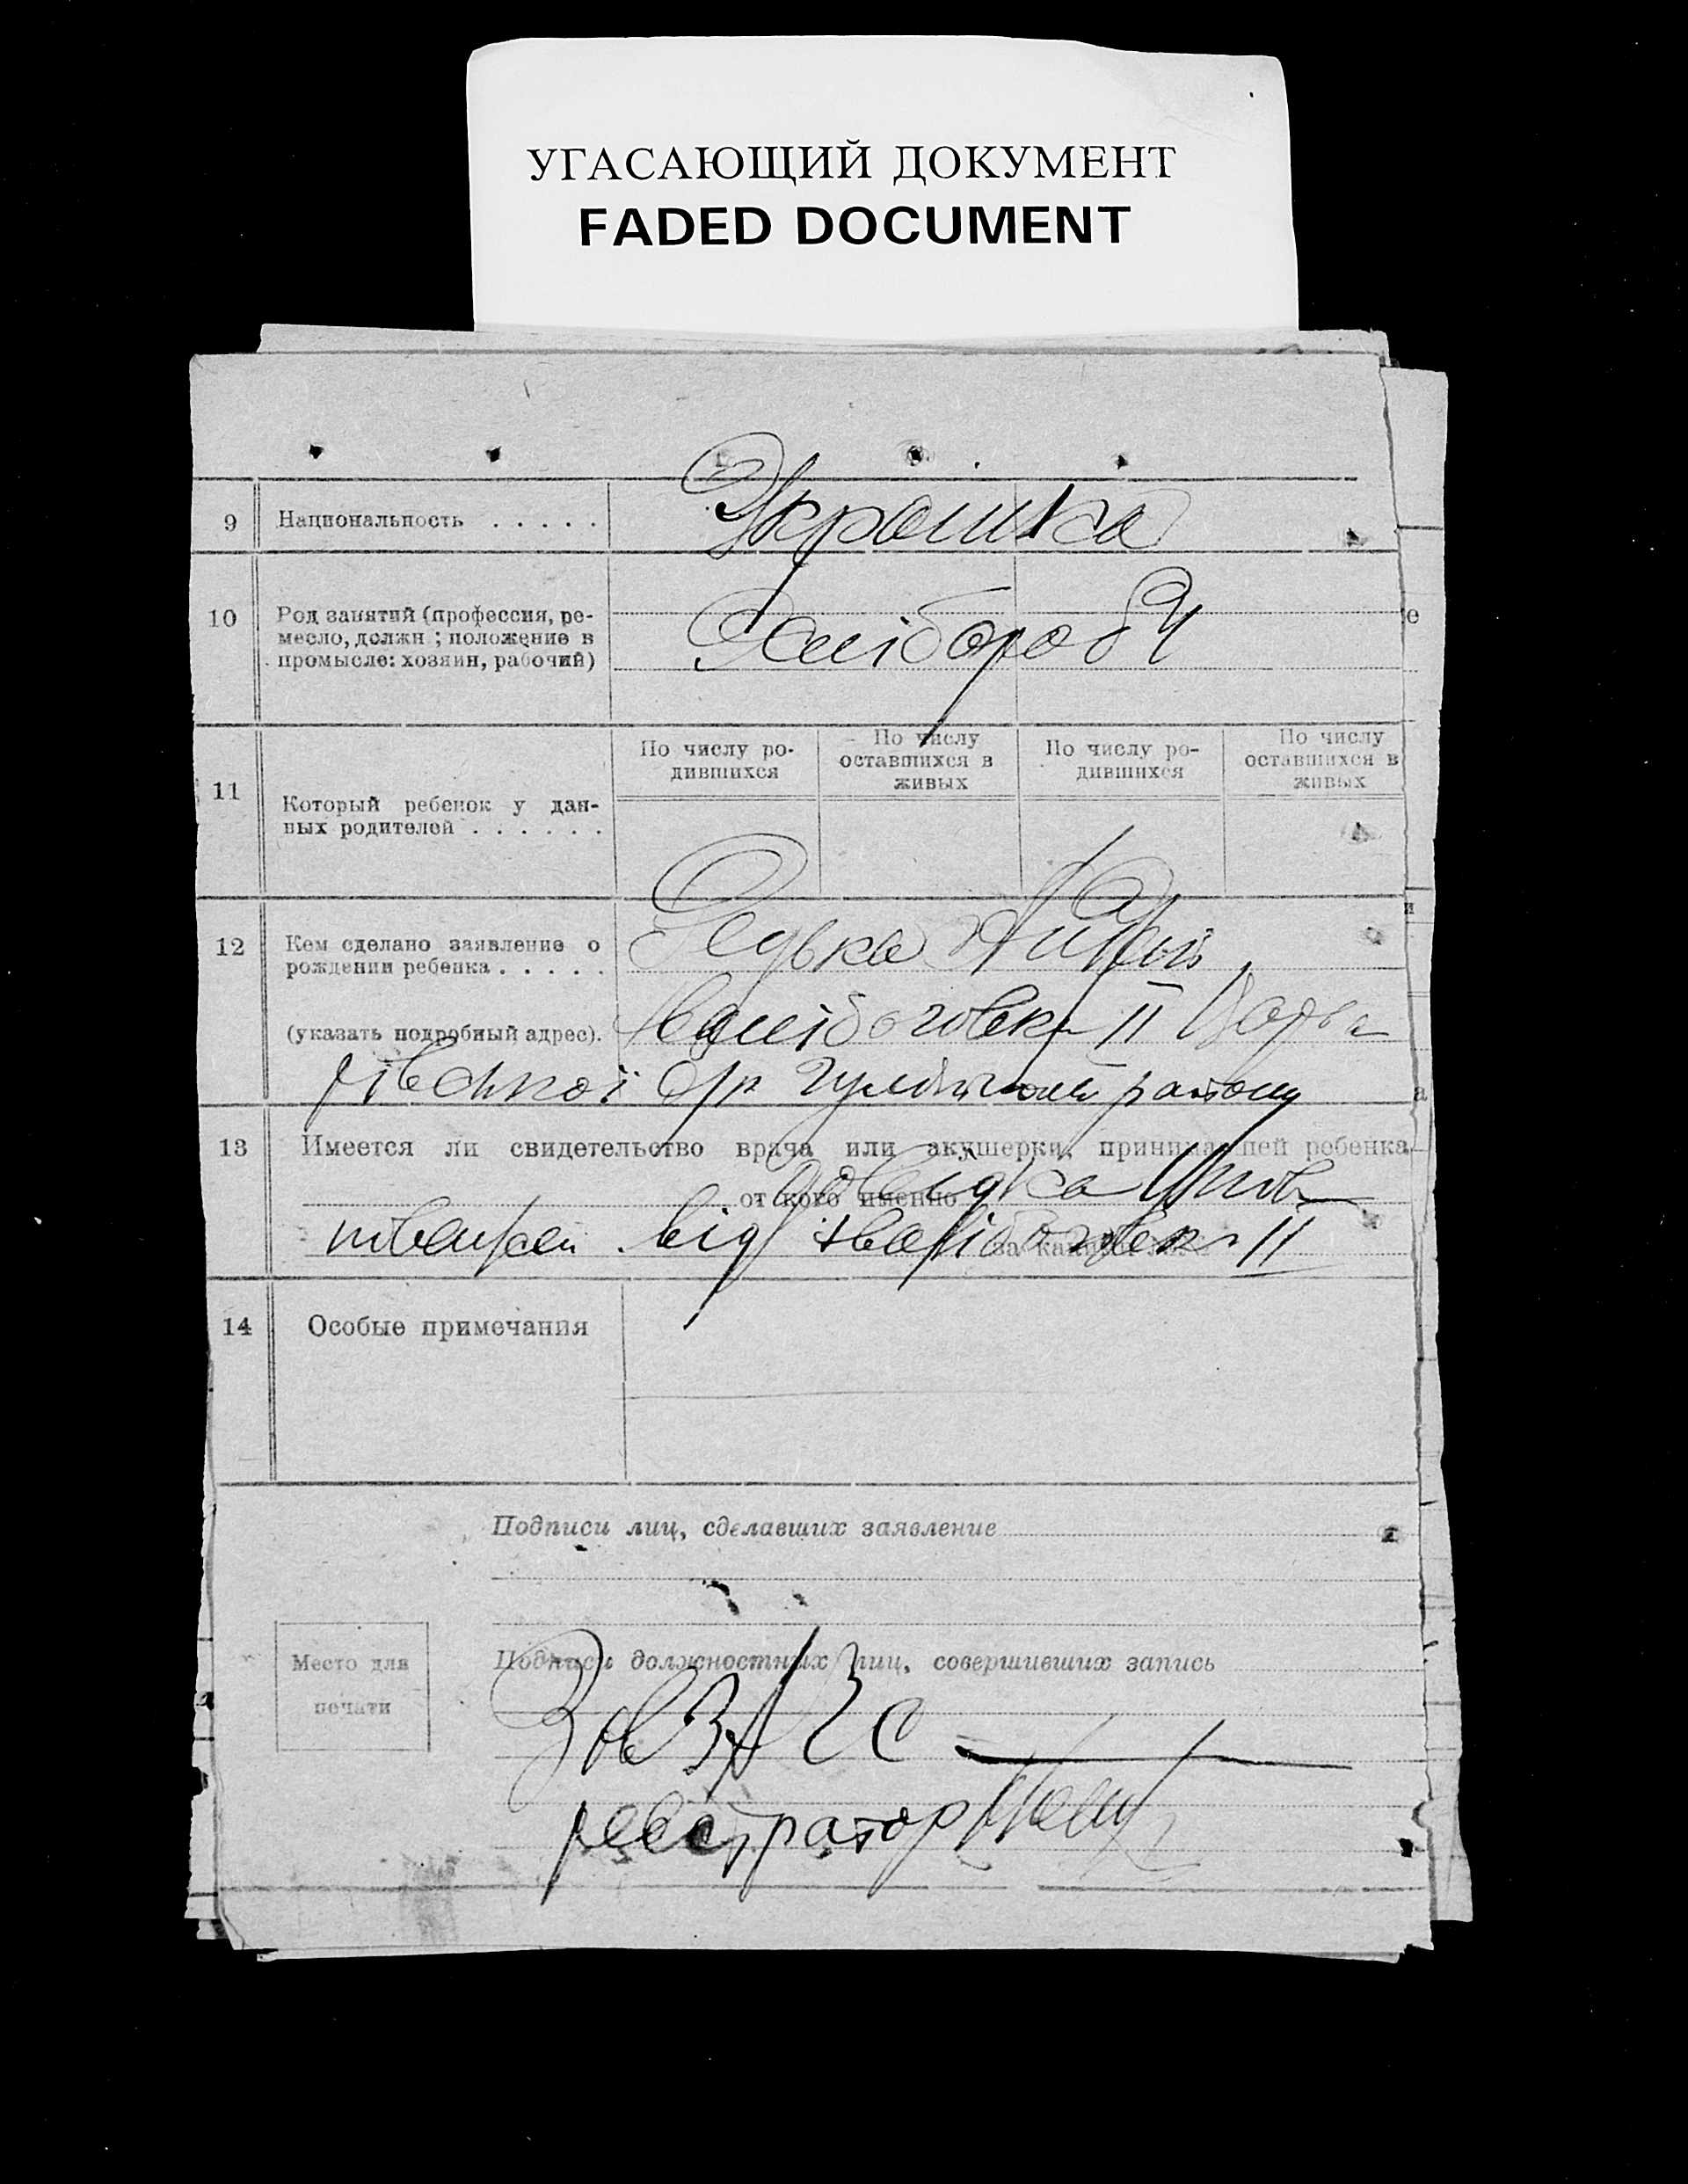 УГАСАЮЩИЙ ДОКУМЕНТ
FADED DOCUMENT
9 Национальность . . . . .
Українка
10 Род занятий (профессия, ре-
месло, должн; положение в
промысле: хозяин, рабочий)
Хлібороб
11 Который ребенок у дан-
ных родителей . . . . . .
По числу ро-
дившихся
По числу
оставшихся в
живых
По числу ро-
дившихся
По числу
оставшихся в
живых
12 Кем сделано заявление о
рождении ребенка . . . . .
Редька
(указать подробный адрес).
II
району
13 Имеется ли свидетельство врача или акушерки, принимавшей ребенка
от кого именно
довідка
від II
14 Особые примечания
Подписи лиц, сделавших заявление
Место для
печати
Подписи должностных лиц, совершивших запись
Зав ЗАГС
реєстратор